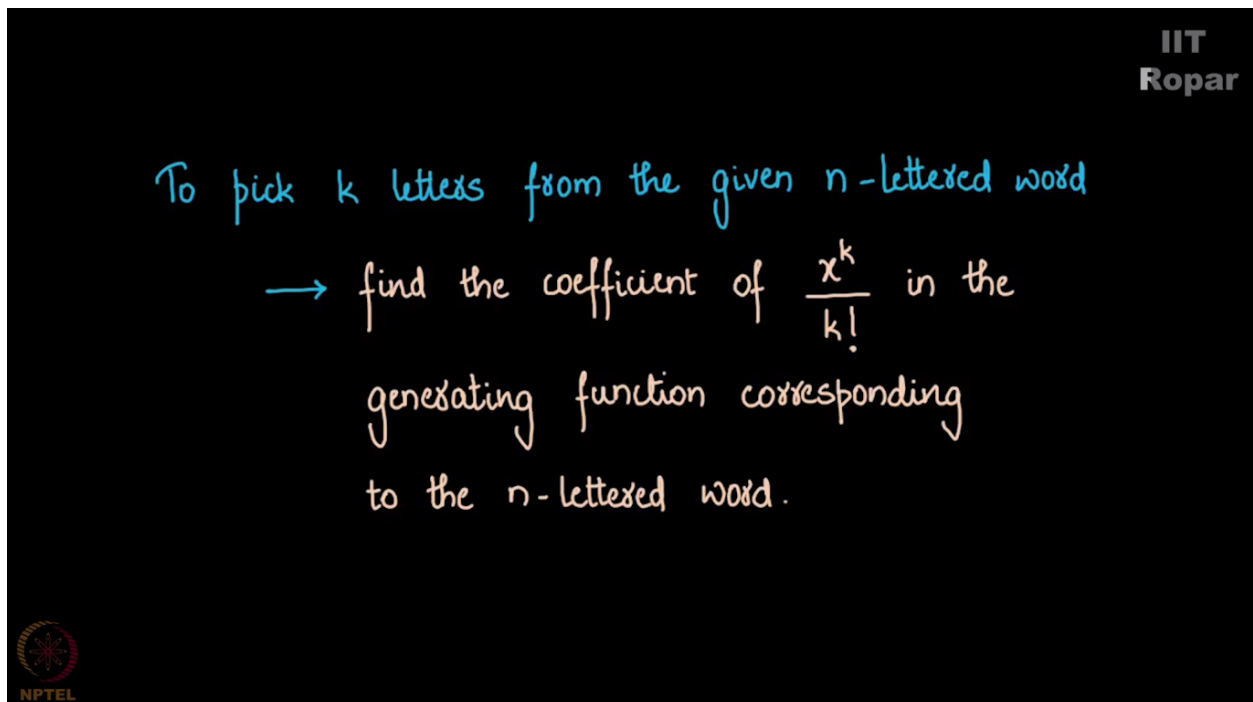 IIT
Ropar
To pick k letters from the given n-lettered word
→ find the coefficient of x^k/k! in the
generating function corresponding
to the n-lettered word.
NPTEL